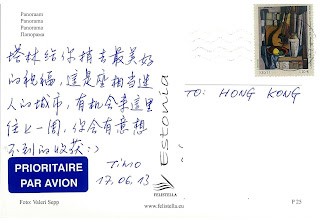 Panoraam
Panorama
Panorama
Панорама
塔林给你捎去最美好
的祝福，这是座相当迷
人的城市，有机会来这里
住上一周，你会有意想
不到的收获：）
TIMO
17.06.13
PRIORITAIRE
PAR AVION
Foto: Valeri Sepp
Estonia
FELISTELLA
www.felistella.eu
TO: HONG KONG
EESTI
P 25